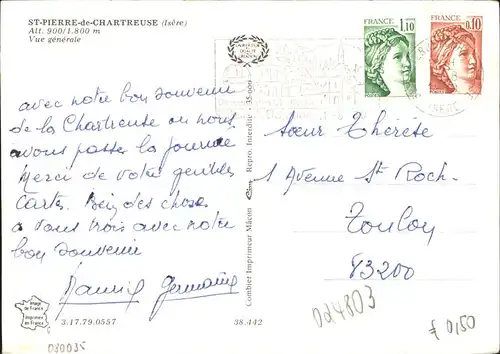 ST-PIERRE-de-CHARTREUSE (Isère)
Alt. 900/1.800 m
Vue générale
FRANCE
1,10
FRANCE
0,10
avec notre bon souvenir
de la Chartreuse où nous
avons passé la journée
Merci de votre gentille
carte. Bien des choses
à vous trois avec notre
bon souvenir
Germaine
Combier Imprimeur Mâcon
Repro. Interdite - 35-009
Sœur Thérèse
1 Avenue St Roch.
Toulon
83200
Image de France
Imprimée en France
3.17.79.0557
38.442
080035
024803
£ 0,50